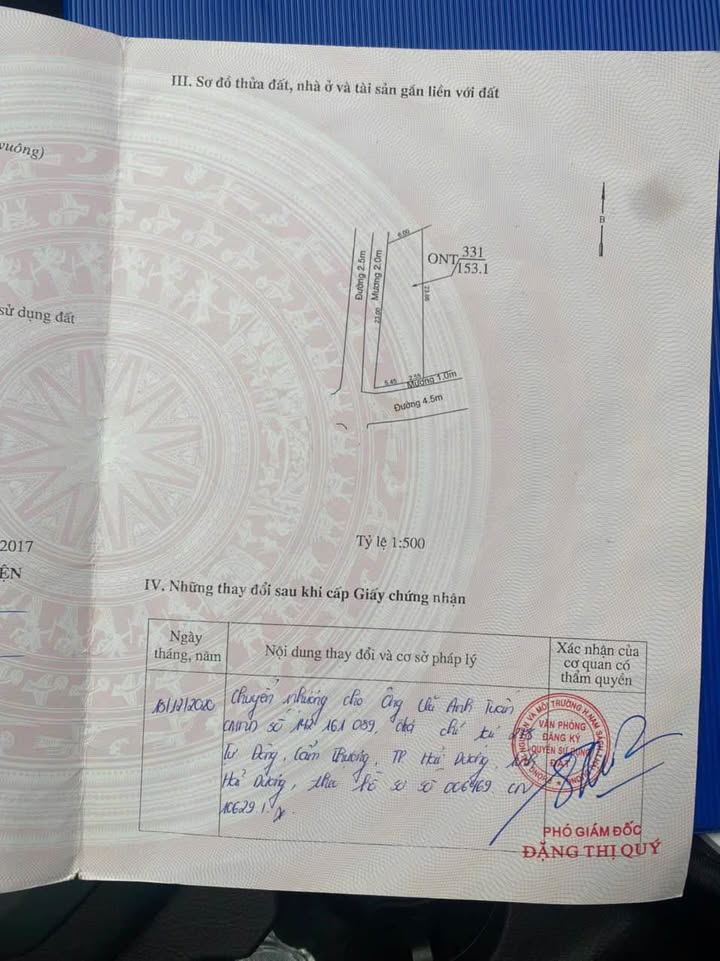 III. Sơ đồ thửa đất, nhà ở và tài sản gắn liền với đất
vuông)
B
6.00
ONT 331
153.1
Đường 2.5m
Mương 2.0m
23.00
23.00
sử dụng đất
5.45
2.55
Mương 1.0m
Đường 4.5m
2017
ỆN
Tỷ lệ 1:500
IV. Những thay đổi sau khi cấp Giấy chứng nhận
Ngày tháng, năm
Nội dung thay đổi và cơ sở pháp lý
Xác nhận của cơ quan có thẩm quyền
Chuyển nhượng cho Ông Vũ Anh Tuấn
CMND số 142 161 089, địa chỉ
Cẩm Thượng, TP Hải Dương, tỉnh
Hải Dương, theo hồ sơ số 006469 CN
VĂN PHÒNG
ĐĂNG KÝ
QUYỀN SỬ DỤNG
ĐẤT
PHÓ GIÁM ĐỐC
ĐẶNG THỊ QUÝ